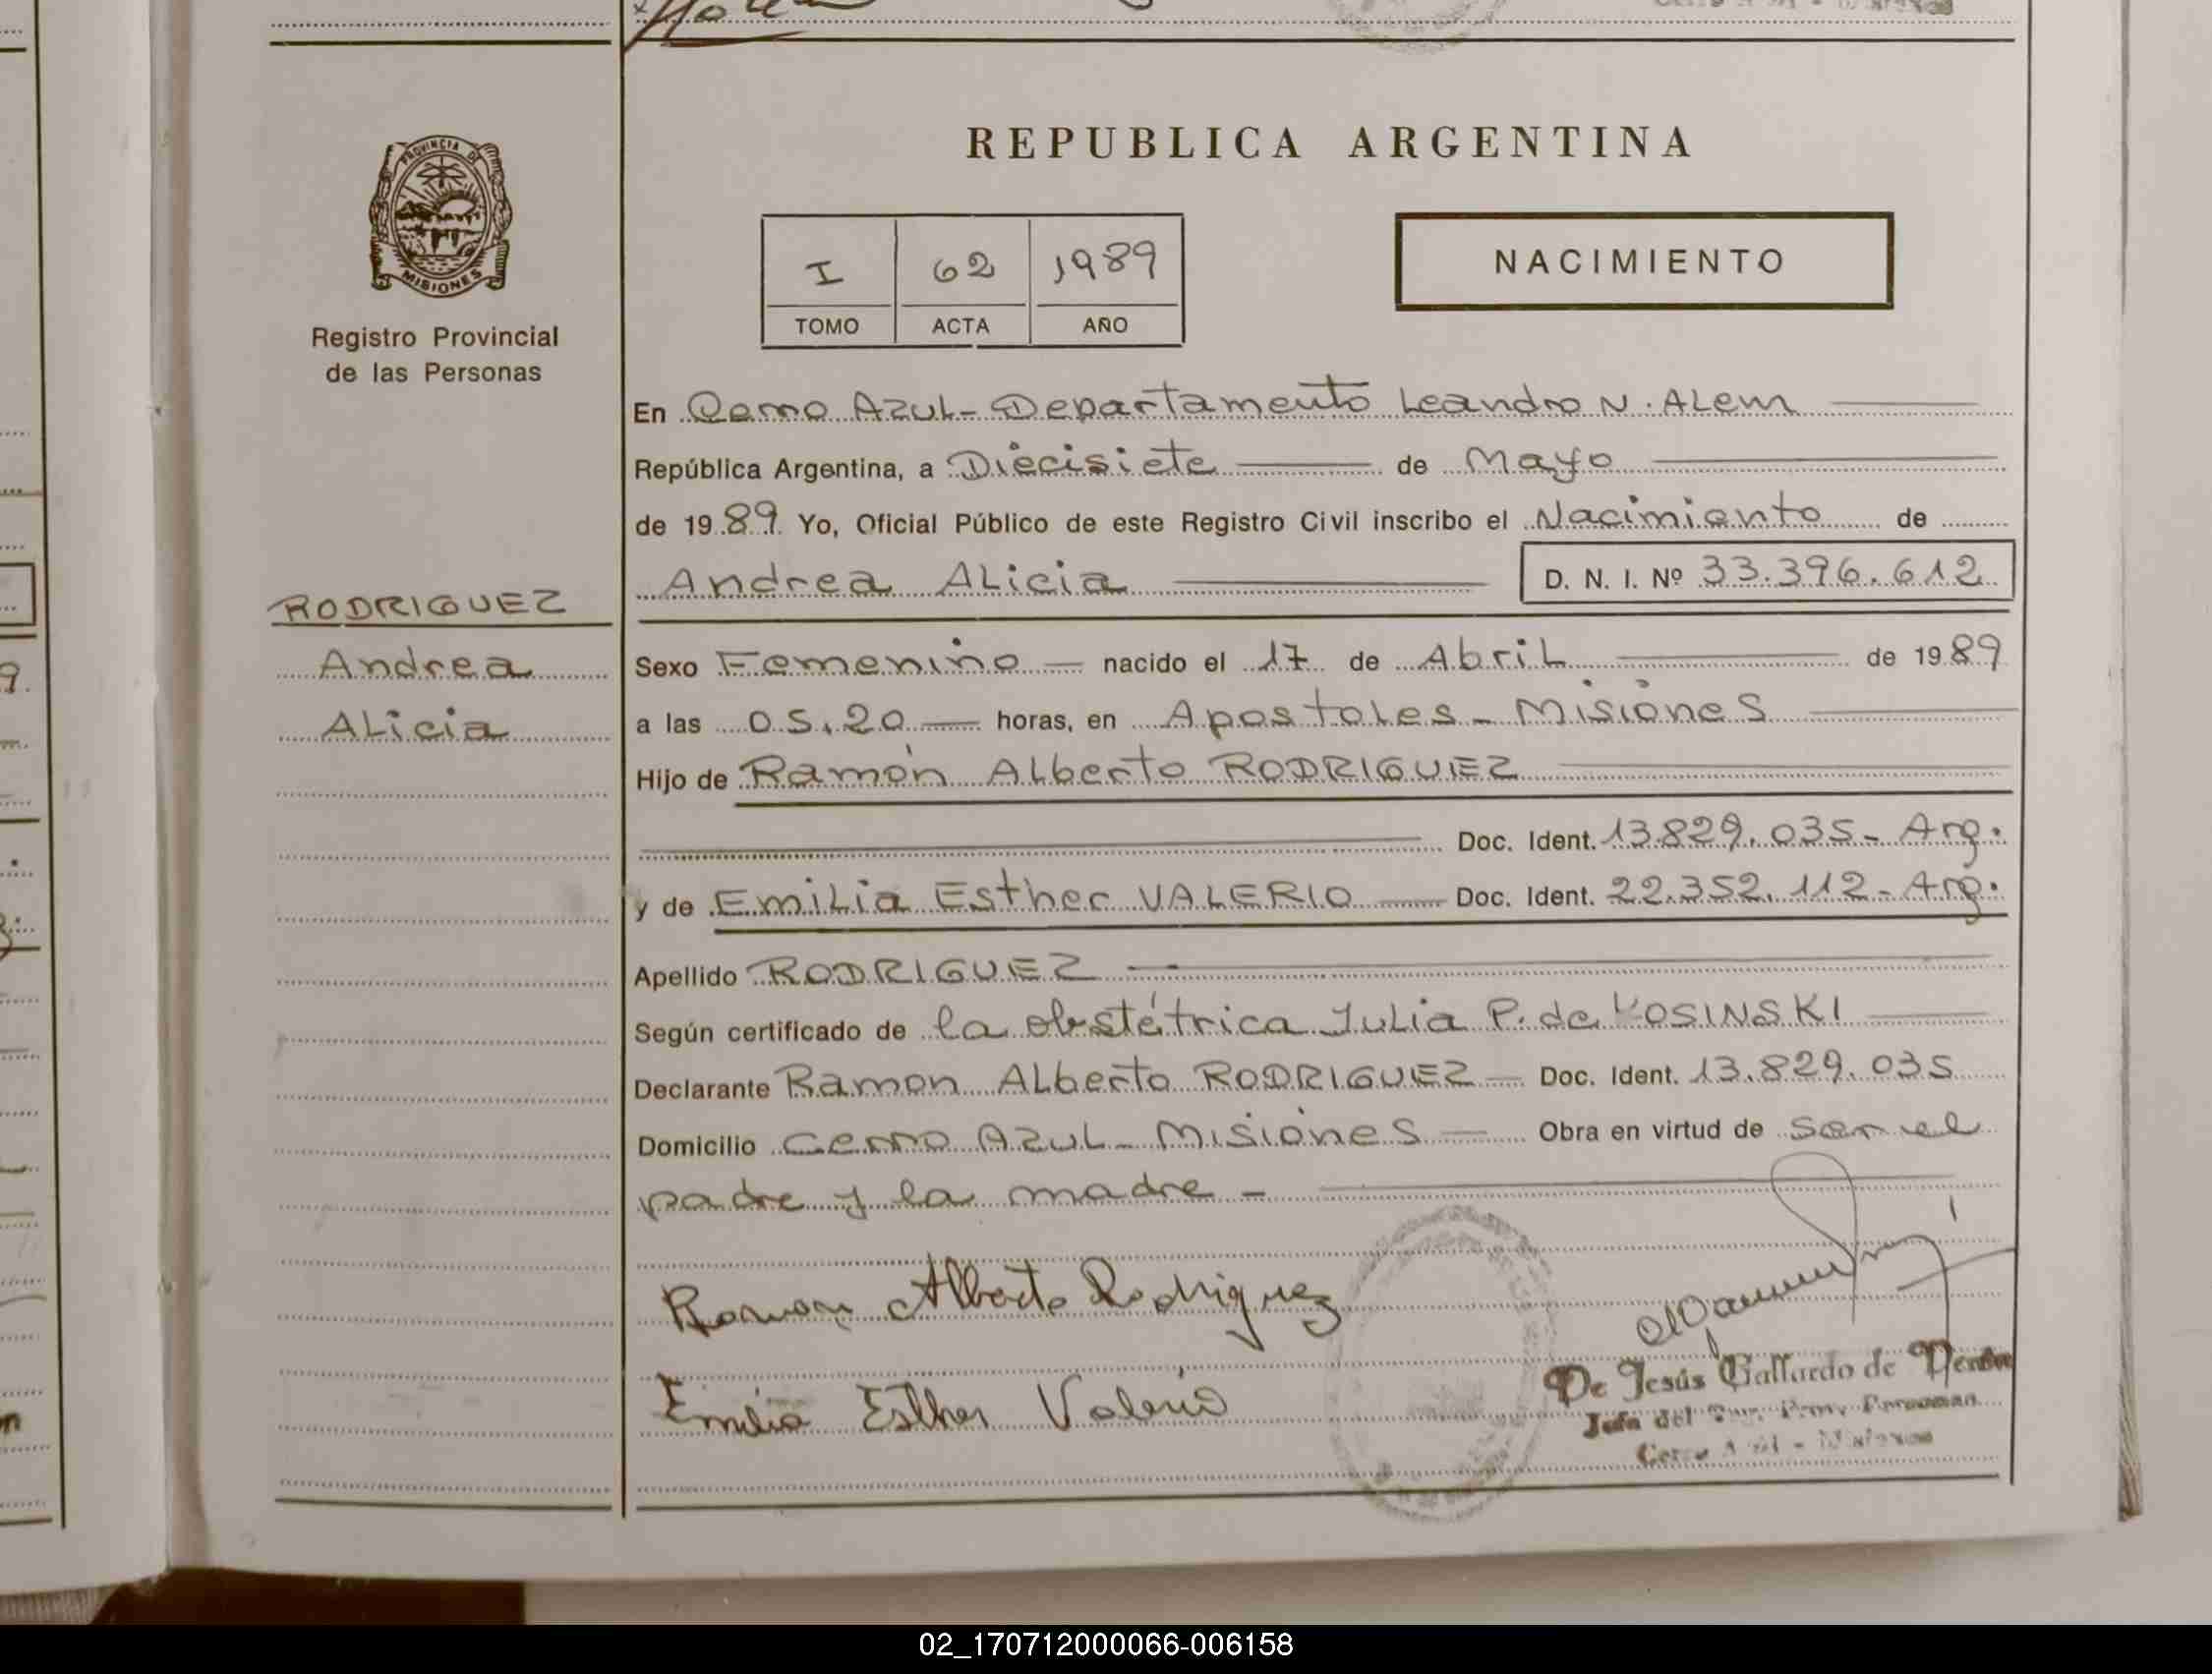 REPUBLICA ARGENTINA
PROVINCIA DE
MISIONES
Registro Provincial
de las Personas
I 62 1989
TOMO ACTA AÑO
NACIMIENTO
En Cerro Azul - Departamento Leandro N. Alem
República Argentina, a Diecisiete de Mayo
de 1989 Yo, Oficial Público de este Registro Civil inscribo el Nacimiento de
Andrea Alicia D. N. I. Nº 33.396.612
RODRIGUEZ
Andrea
Alicia
Sexo Femenino nacido el 17 de Abril de 1989
a las 05,20 horas, en Apostoles - Misiones
Hijo de Ramón Alberto RODRIGUEZ
Doc. Ident. 13.829.035 - Arg.
y de Emilia Esther VALERIO Doc. Ident. 22.352.112 - Arg.
Apellido RODRIGUEZ
Según certificado de la obstétrica Julia P. de KOSINSKI
Declarante Ramon Alberto RODRIGUEZ Doc. Ident. 13.829.035
Domicilio Cerro Azul - Misiones Obra en virtud de ser el
padre y la madre -
Ramon Alberto Rodriguez
Emilia Esther Valerio
De Jesús Gallardo de
Jefa del
Cerro Azul - Misiones
02_170712000066-006158